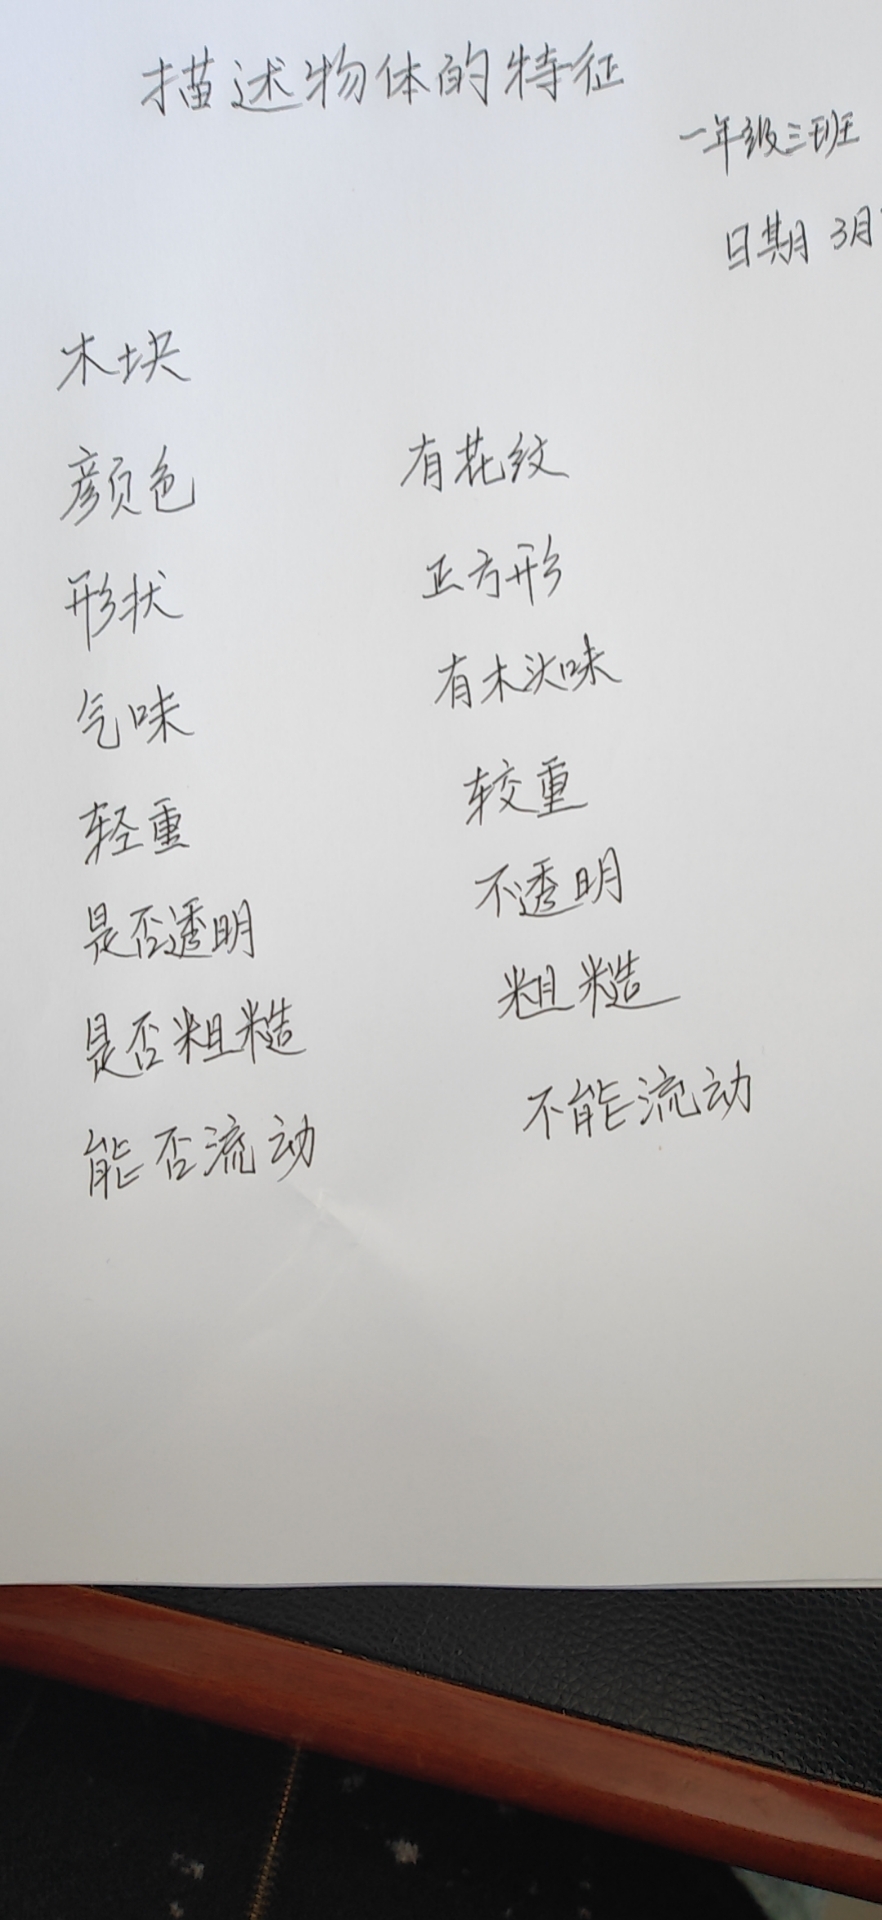 描述物体的特征
一年级三班
日期 3月
木块
颜色 有花纹
形状 正方形
气味 有木头味
轻重 较重
是否透明 不透明
是否粗糙 粗糙
能否流动 不能流动